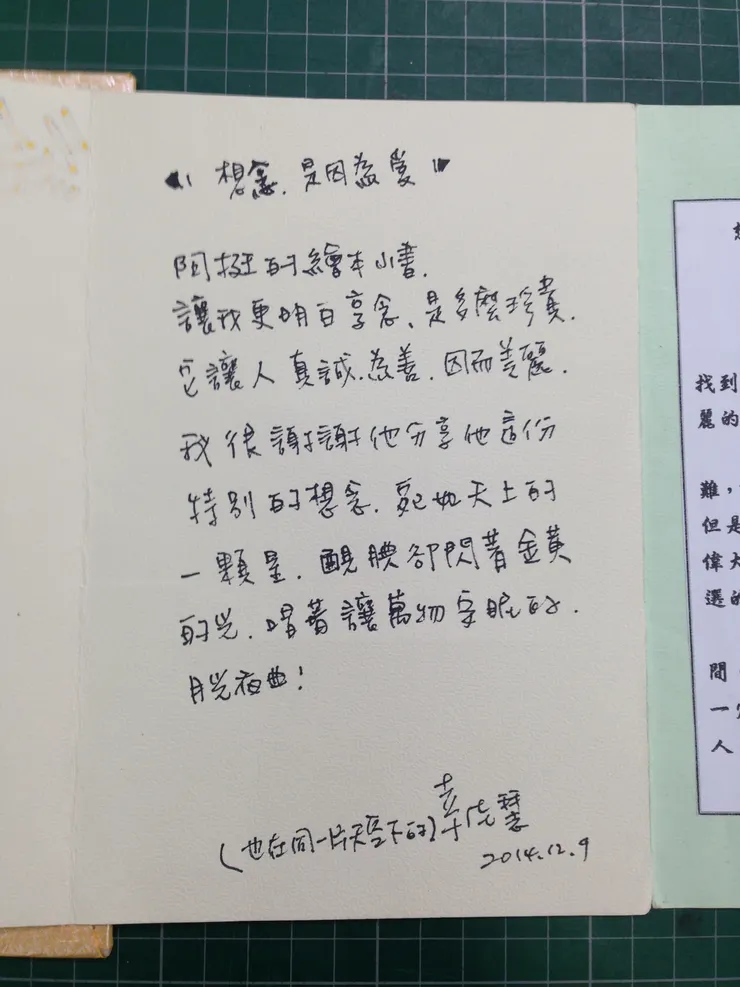 〝想念．是因為愛〞
阿挺的繪本小書．
讓我更明白享念、是多麼珍貴．
它讓人真誠．為善．因而美麗．
我很謝謝他分享他這份
特別的想念．宛如天上的
一顆星．靦腆卻閃著金黃
的光．唱著讓萬物安眠的．
月光夜曲！
(也在同一片天空下的)幸佳慧
2014.12.9
找到
麗的
難，
但是
偉大
選的
間
一
人